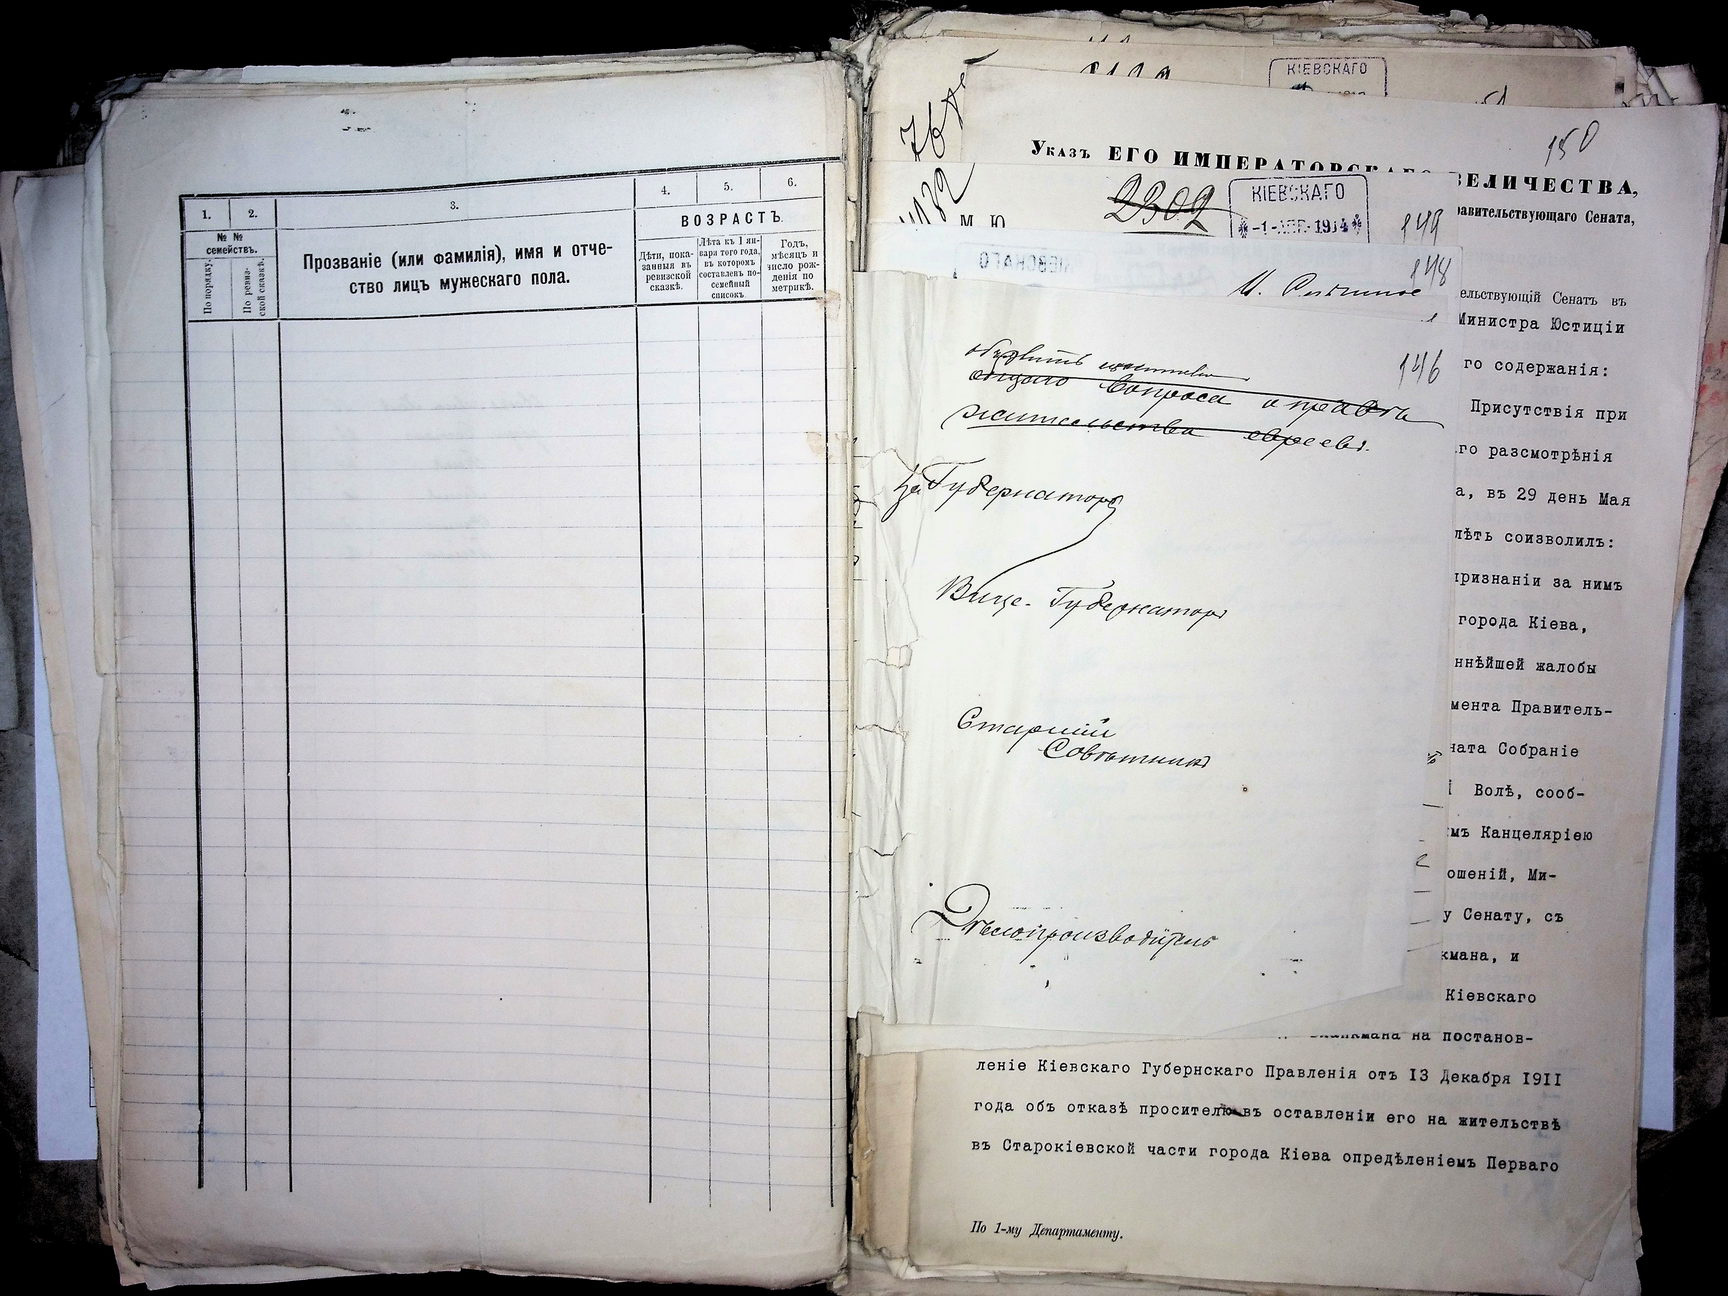 1.
2.
3.
4.
5.
6.
№ №
семействъ.
По порядку.
По ревиз-
ской сказкѣ.
Прозваніе (или фамилія), имя и отче-
ство лицъ мужескаго пола.
ВОЗРАСТЪ.
Дѣти, пока-
занныя въ
ревизской
сказкѣ.
Лѣта къ 1 ян-
варя того года,
въ которомъ
составленъ по-
семейный
списокъ
Годъ,
мѣсяцъ и
число рож-
денія по
метрикѣ.
КІЕВСКАГО
150
Указъ ЕГО ИМПЕРАТОРСКАГО ВЕЛИЧЕСТВА,
авительствующаго Сената,
М Ю
2302
КІЕВСКАГО
-1-АПР.1914
149
КІЕВСКАГО
148
146
вопроса о правѣ
жительства евреевъ.
За Губернатора
Вице-Губернаторъ
Старшій
Совѣтникъ
Дѣлопроизводитель
ельствующій Сенатъ въ
Министра Юстиціи
го содержанія:
Присутствія при
го разсмотрѣнія
а, въ 29 день Мая
лѣть соизволилъ:
признаніи за нимъ
города Кіева,
ннѣйшей жалобы
мента Правитель-
ната Собраніе
Волѣ, сооб-
мъ Канцеляріею
ошеній, Ми-
у Сенату, съ
кмана, и
Кіевскаго
на постанов-
леніе Кіевскаго Губернскаго Правленія отъ 13 Декабря 1911
года объ отказѣ просителю въ оставленіи его на жительствѣ
въ Старокіевской части города Кіева опредѣленіемъ Перваго
По 1-му Департаменту.